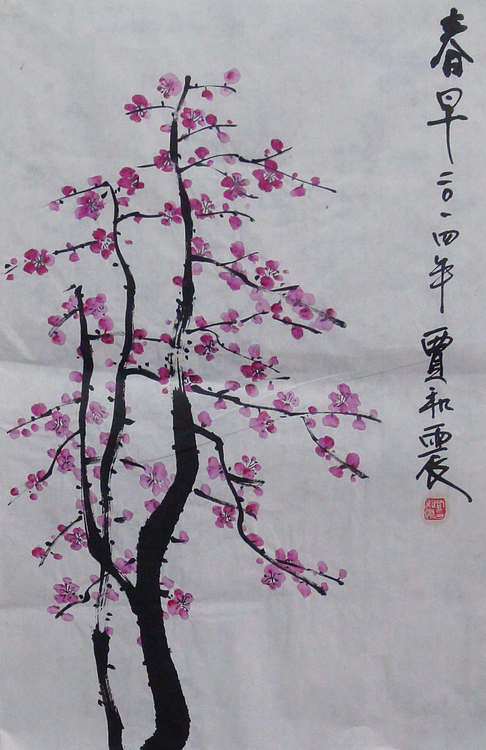 春早二〇一四年賈和震